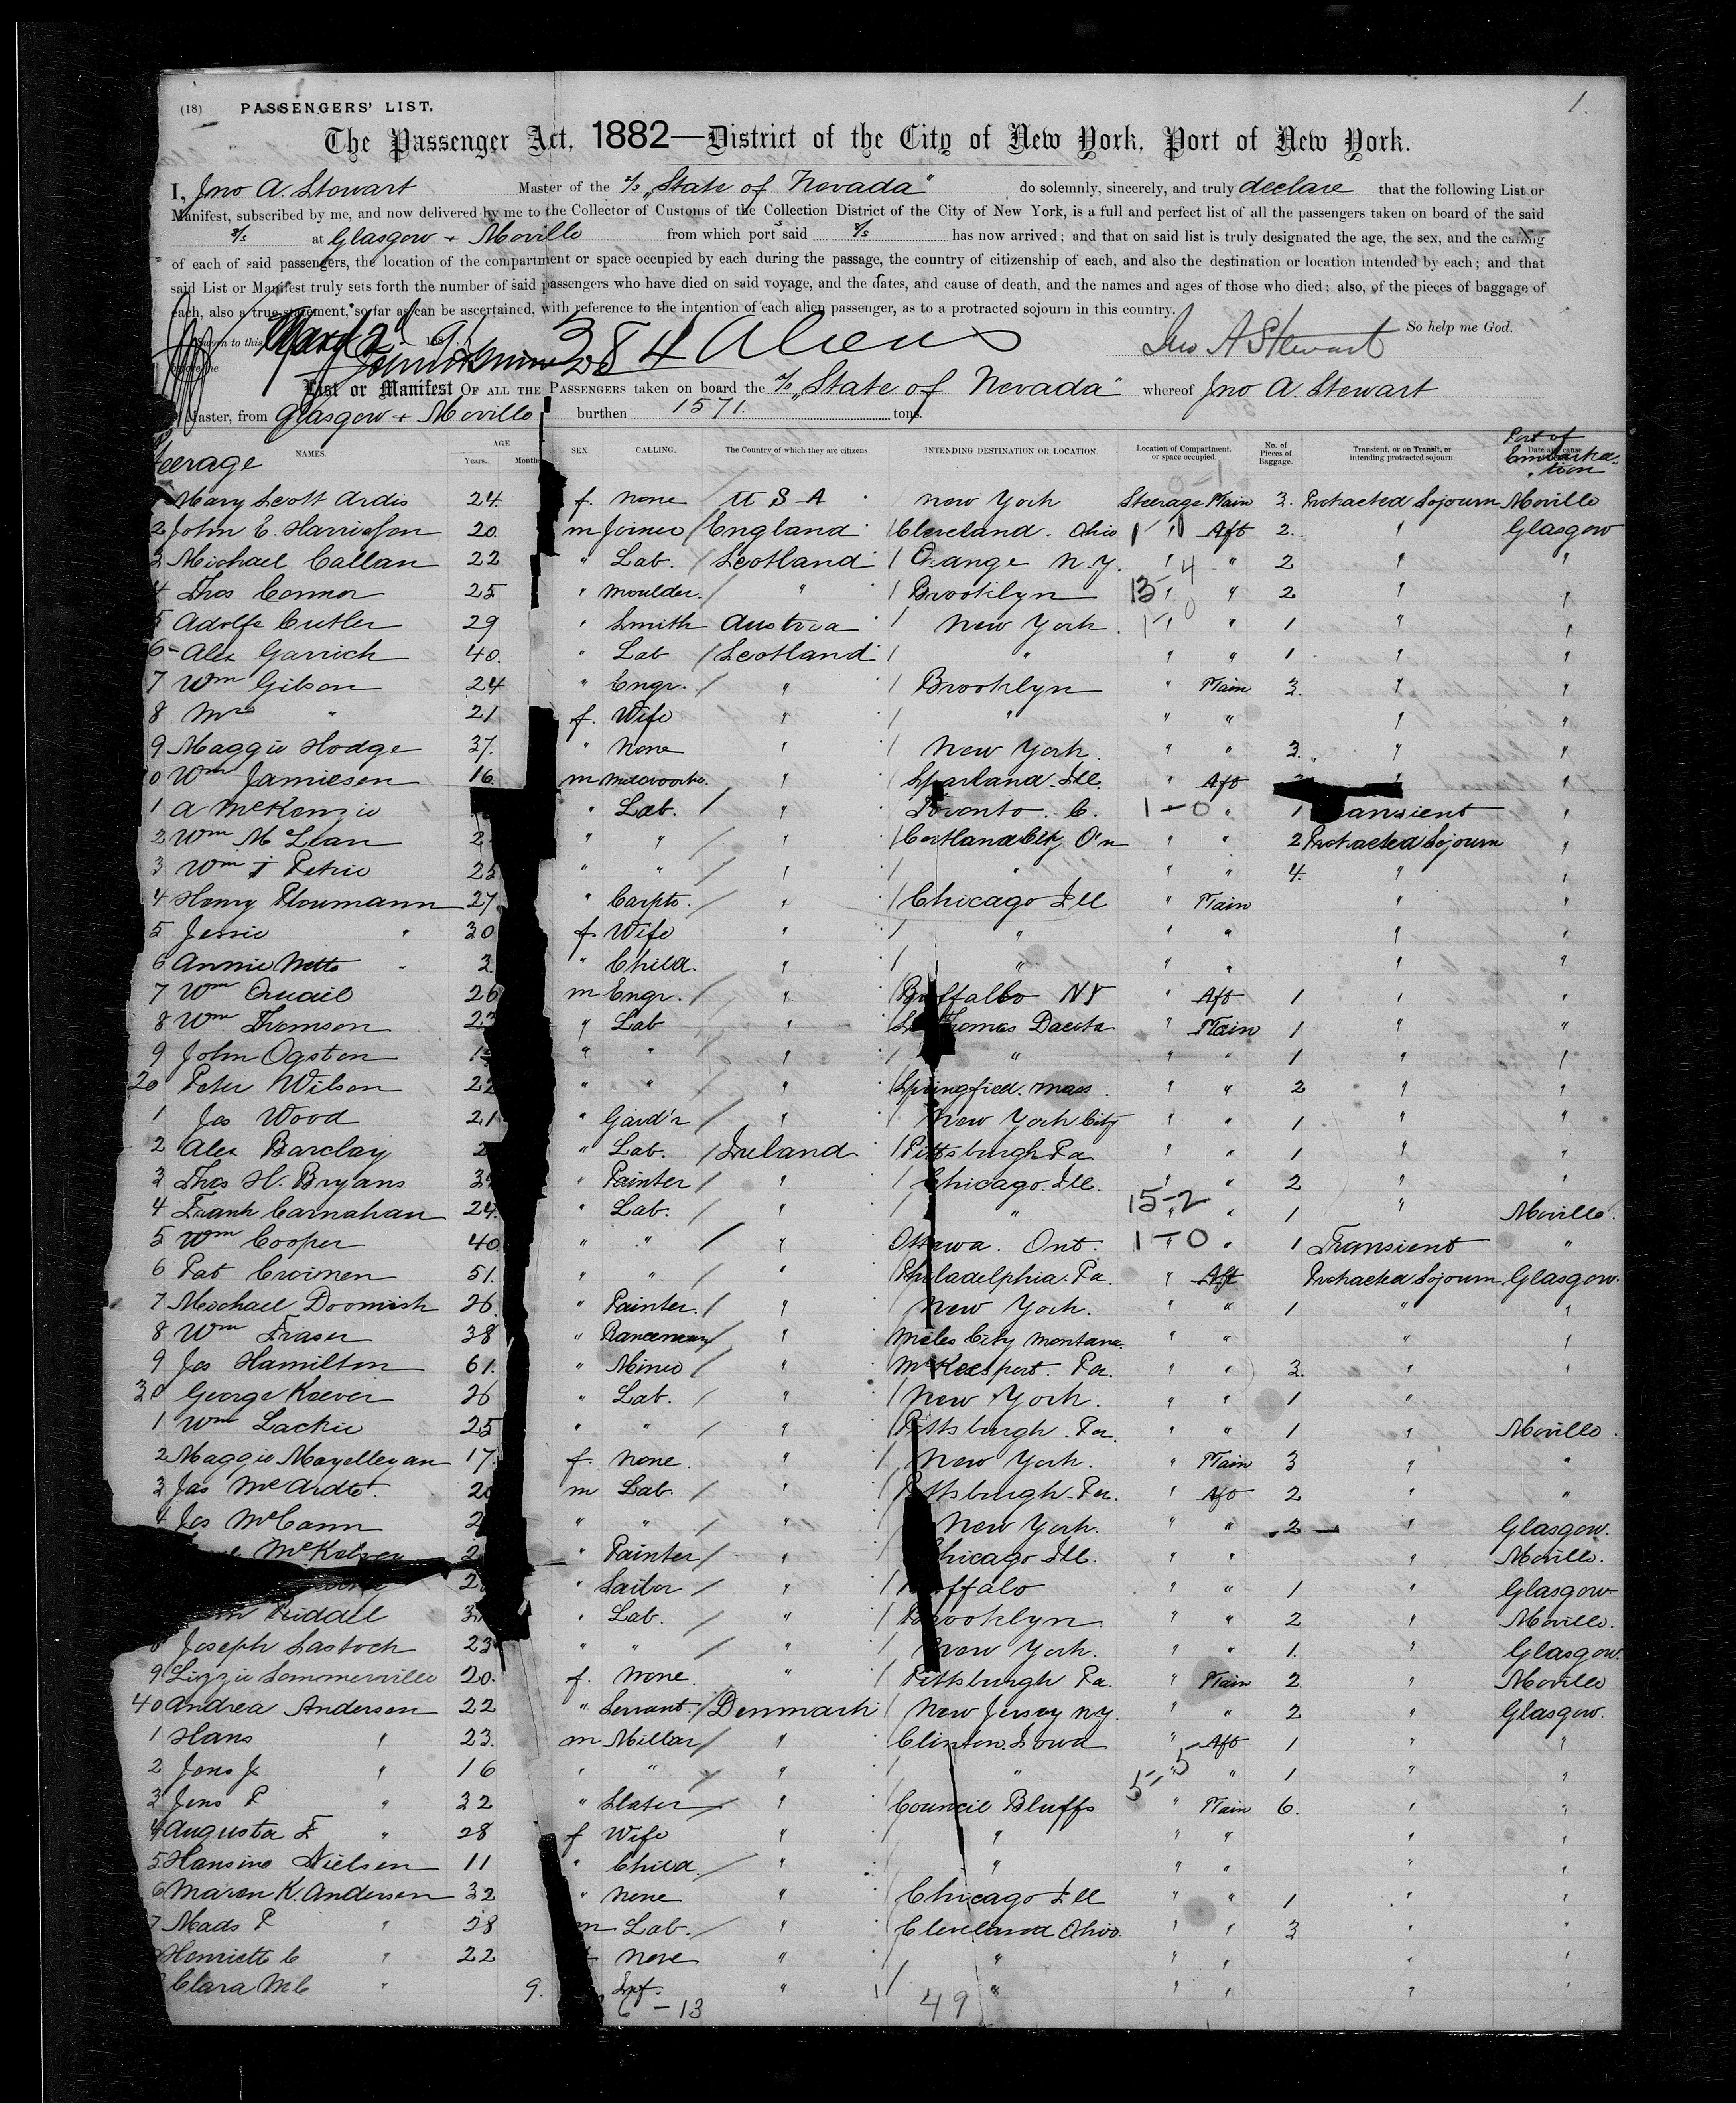 (18) PASSENGERS' LIST. 1.
The Passenger Act, 1882—District of the City of New York, Port of New York.
I, Jno A. Stewart Master of the s/s „State of Nevada" do solemnly, sincerely, and truly declare that the following List or
Manifest, subscribed by me, and now delivered by me to the Collector of Customs of the Collection District of the City of New York, is a full and perfect list of all the passengers taken on board of the said
s/s at Glasgow + Moville from which port s said s/s has now arrived; and that on said list is truly designated the age, the sex, and the calling
of each of said passengers, the location of the compartment or space occupied by each during the passage, the country of citizenship of each, and also the destination or location intended by each; and that
said List or Manifest truly sets forth the number of said passengers who have died on said voyage, and the dates, and cause of death, and the names and ages of those who died; also, of the pieces of baggage of
each, also a true statement, so far as can be ascertained, with reference to the intention of each alien passenger, as to a protracted sojourn in this country.
So help me God.
Sworn to this 384 Aliens Jno A Stewart
List or Manifest OF ALL THE PASSENGERS taken on board the s/s „State of Nevada" whereof Jno A. Stewart
Master, from Glasgow + Moville burthen 1571. tons.
NAMES. AGE Years. Months SEX. CALLING. The Country of which they are citizens INTENDING DESTINATION OR LOCATION. Location of Compartment, or space occupied. No. of Pieces of Baggage. Transient, or on Transit, or intending protracted sojourn. Port of Embarkation
Mary Scott Ardis 24. f. None U S A New York Steerage Main 3. Protracted Sojourn Moville
2 John E. Harrison 20. m Joiner England Cleveland. Ohio " Aft 2. " Glasgow
3 Michael Callan 22 " Lab. Scotland Orange N.Y. " " 2 " "
4 Thos Connor 25 " Moulder. " Brooklyn " " 2 " "
5 Adolfe Cutler 29 " Smith Austria New York. " " 1 " "
6 Alex Garrich 40. " Lab Scotland " " " 1 " "
7 Wm Gibson 24 " Engr. " Brooklyn " Main 3. " "
8 Mrs " 21 f. Wife " " " " " "
9 Maggie Hodge 37. " None " New York. " " 3. " "
0 Wm Jamiesen 16. m " Sparland. Ill. " Aft " "
1 A McKenzie " Lab. " Toronto. C. 1-0 " 1 Transient "
2 Wm McLean 2 " " " Cortland City " " 2 Protracted Sojourn "
3 Wm J Petrie 25 " " " " " " 4. " "
4 Henry Ploumann 27 " Carptr. " Chicago Ill " Main " "
5 Jessie " 30 f. Wife " " " " " "
6 Annie Netta " 3 " Child. " " " " " "
7 Wm Quail 26 m Engr. " Buffallo NY " Aft 1 " "
8 Wm Thomson 23 " Lab " Thomas Dacota " Main 1 " "
9 John Ogston " " " " " " 1 " "
20 Peter Wilson 22 " " " Springfied. Mass. " " 2 " "
1 Jas Wood 21 " Gard'r " New York City " " 1 " "
2 Alex Barclay 2 " Lab. Ireland Pittsburgh Pa " " 1 " "
3 Thos H. Bryans 3 " Painter " Chicago. Ill. " " 2 " "
4 Frank Carnahan 24. " Lab. " " 15-2 " " 1 " Moville.
5 Wm Cooper 40 " " " Ottawa. Ont. 1-0 " " 1 Transient "
6 Pat Croinen 51. " " " Philadelphia. Pa. " Aft Protracted Sojourn Glasgow.
7 Michael Doomish 26. " Painter. " New York. " " 1 " "
8 Wm Fraser 38 " " Miles City Montana. " " " "
9 Jas Hamilton 61. " Miner " McKeesport. Pa. " " 3. " "
30 George Keever 26 " Lab. " New York. " " 1 "
1 Wm Lackie 25 " " " Pittsburgh. Pa. " " 1 " Moville.
2 Maggie 17. f. None. " New York. " Main 3 " "
3 Jas McArdte. 2 m Lab. " Pittsburgh. Pa. " Aft 2 " "
4 Jas McCann 2 " " " New York. " " 2 " Glasgow.
2 " Painter " Chicago Ill. " " " Moville.
2 " Sailor " Buffalo " " 1 " Glasgow.
Riddell 3 " Lab. " Brooklyn " " 2 " Moville.
8 Joseph Sastoch 23 " " " New York. " " 1. " Glasgow.
9 Lizzie Sommerville 20. f. None. " Pittsburgh Pa. " Main 2. " Moville
40 Andrea Andersen 22 " Servant. Denmark New Jersey N.Y. " " 2 " Glasgow.
1 Hans " 23. m Millar " Clinton. Iowa " Aft 1 " "
2 Jens Jr " 16 " " " " " " 1 " "
3 Jens P " 32 " Slater " Council Bluffs " Main 6. " "
4 Augusta E " 28 f Wife " " " " " "
5 Hansine Nielsen 11 " Child. " " " " " "
6 Maren K. Andersen 32 " None " Chicago Ill " " 1 " "
7 Mads P " 28 m Lab. " Cleveland Ohio. " " 3 " "
Henriette C " 22 None " " " " " "
Clara M C " 9. Inf. " " " " " "
6-13 49